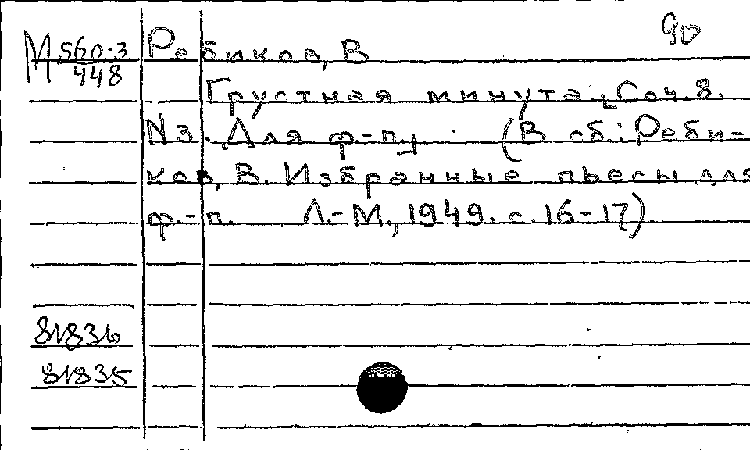 90
М 560-3 Ребиков, В
448
Грустная минута. Соч. 8.
N3. Для ф-п. (В сб.: Реби-
ков, В. Избранные пьесы для
ф.-п. Л.-М., 1949. с. 16-17)
81836
81835